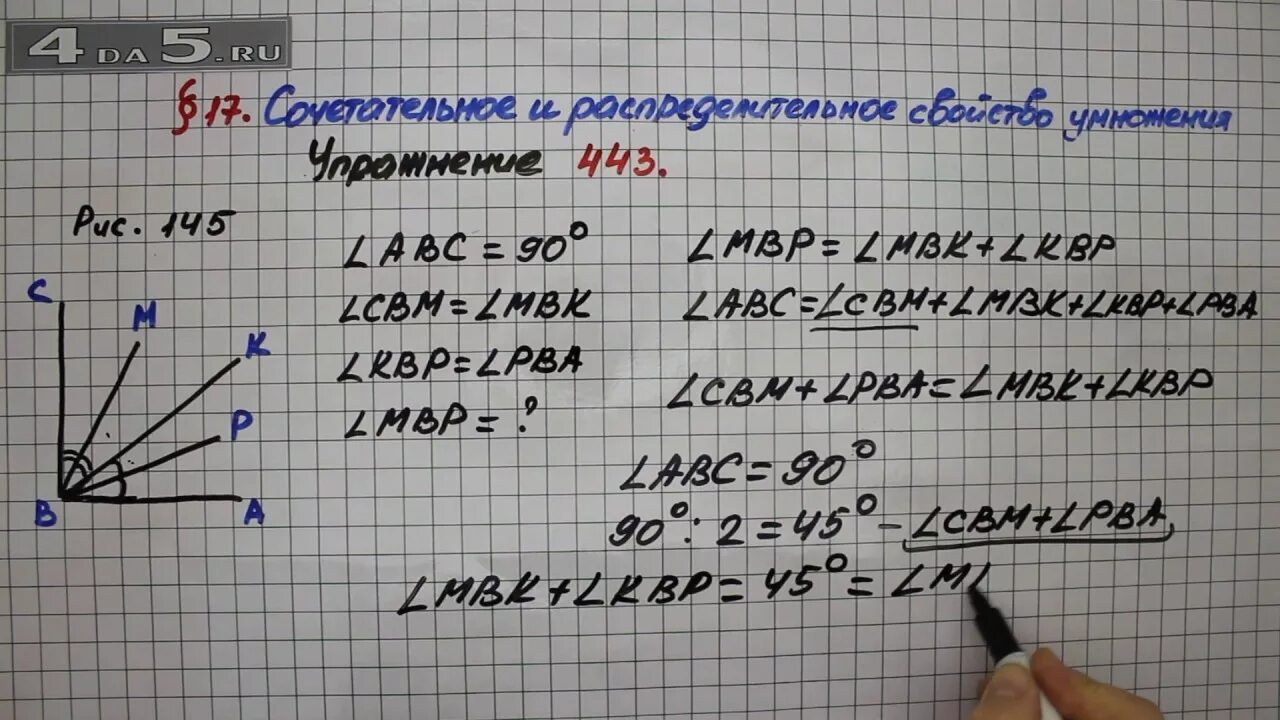 4DA5.RU
§17. Сочетательное и распределительное свойство умножения
Упражнение 443.
Рис. 145
C
M
K
P
B
A
∠ABC = 90°
∠CBM = ∠MBK
∠KBP = ∠PBA
∠MBP = ?
∠MBP = ∠MBK + ∠KBP
∠ABC = ∠CBM + ∠MBK + ∠KBP + ∠PBA
∠CBM + ∠PBA = ∠MBK + ∠KBP
∠ABC = 90°
90° : 2 = 45° - ∠CBM + ∠PBA,
∠MBK + ∠KBP = 45° = ∠M